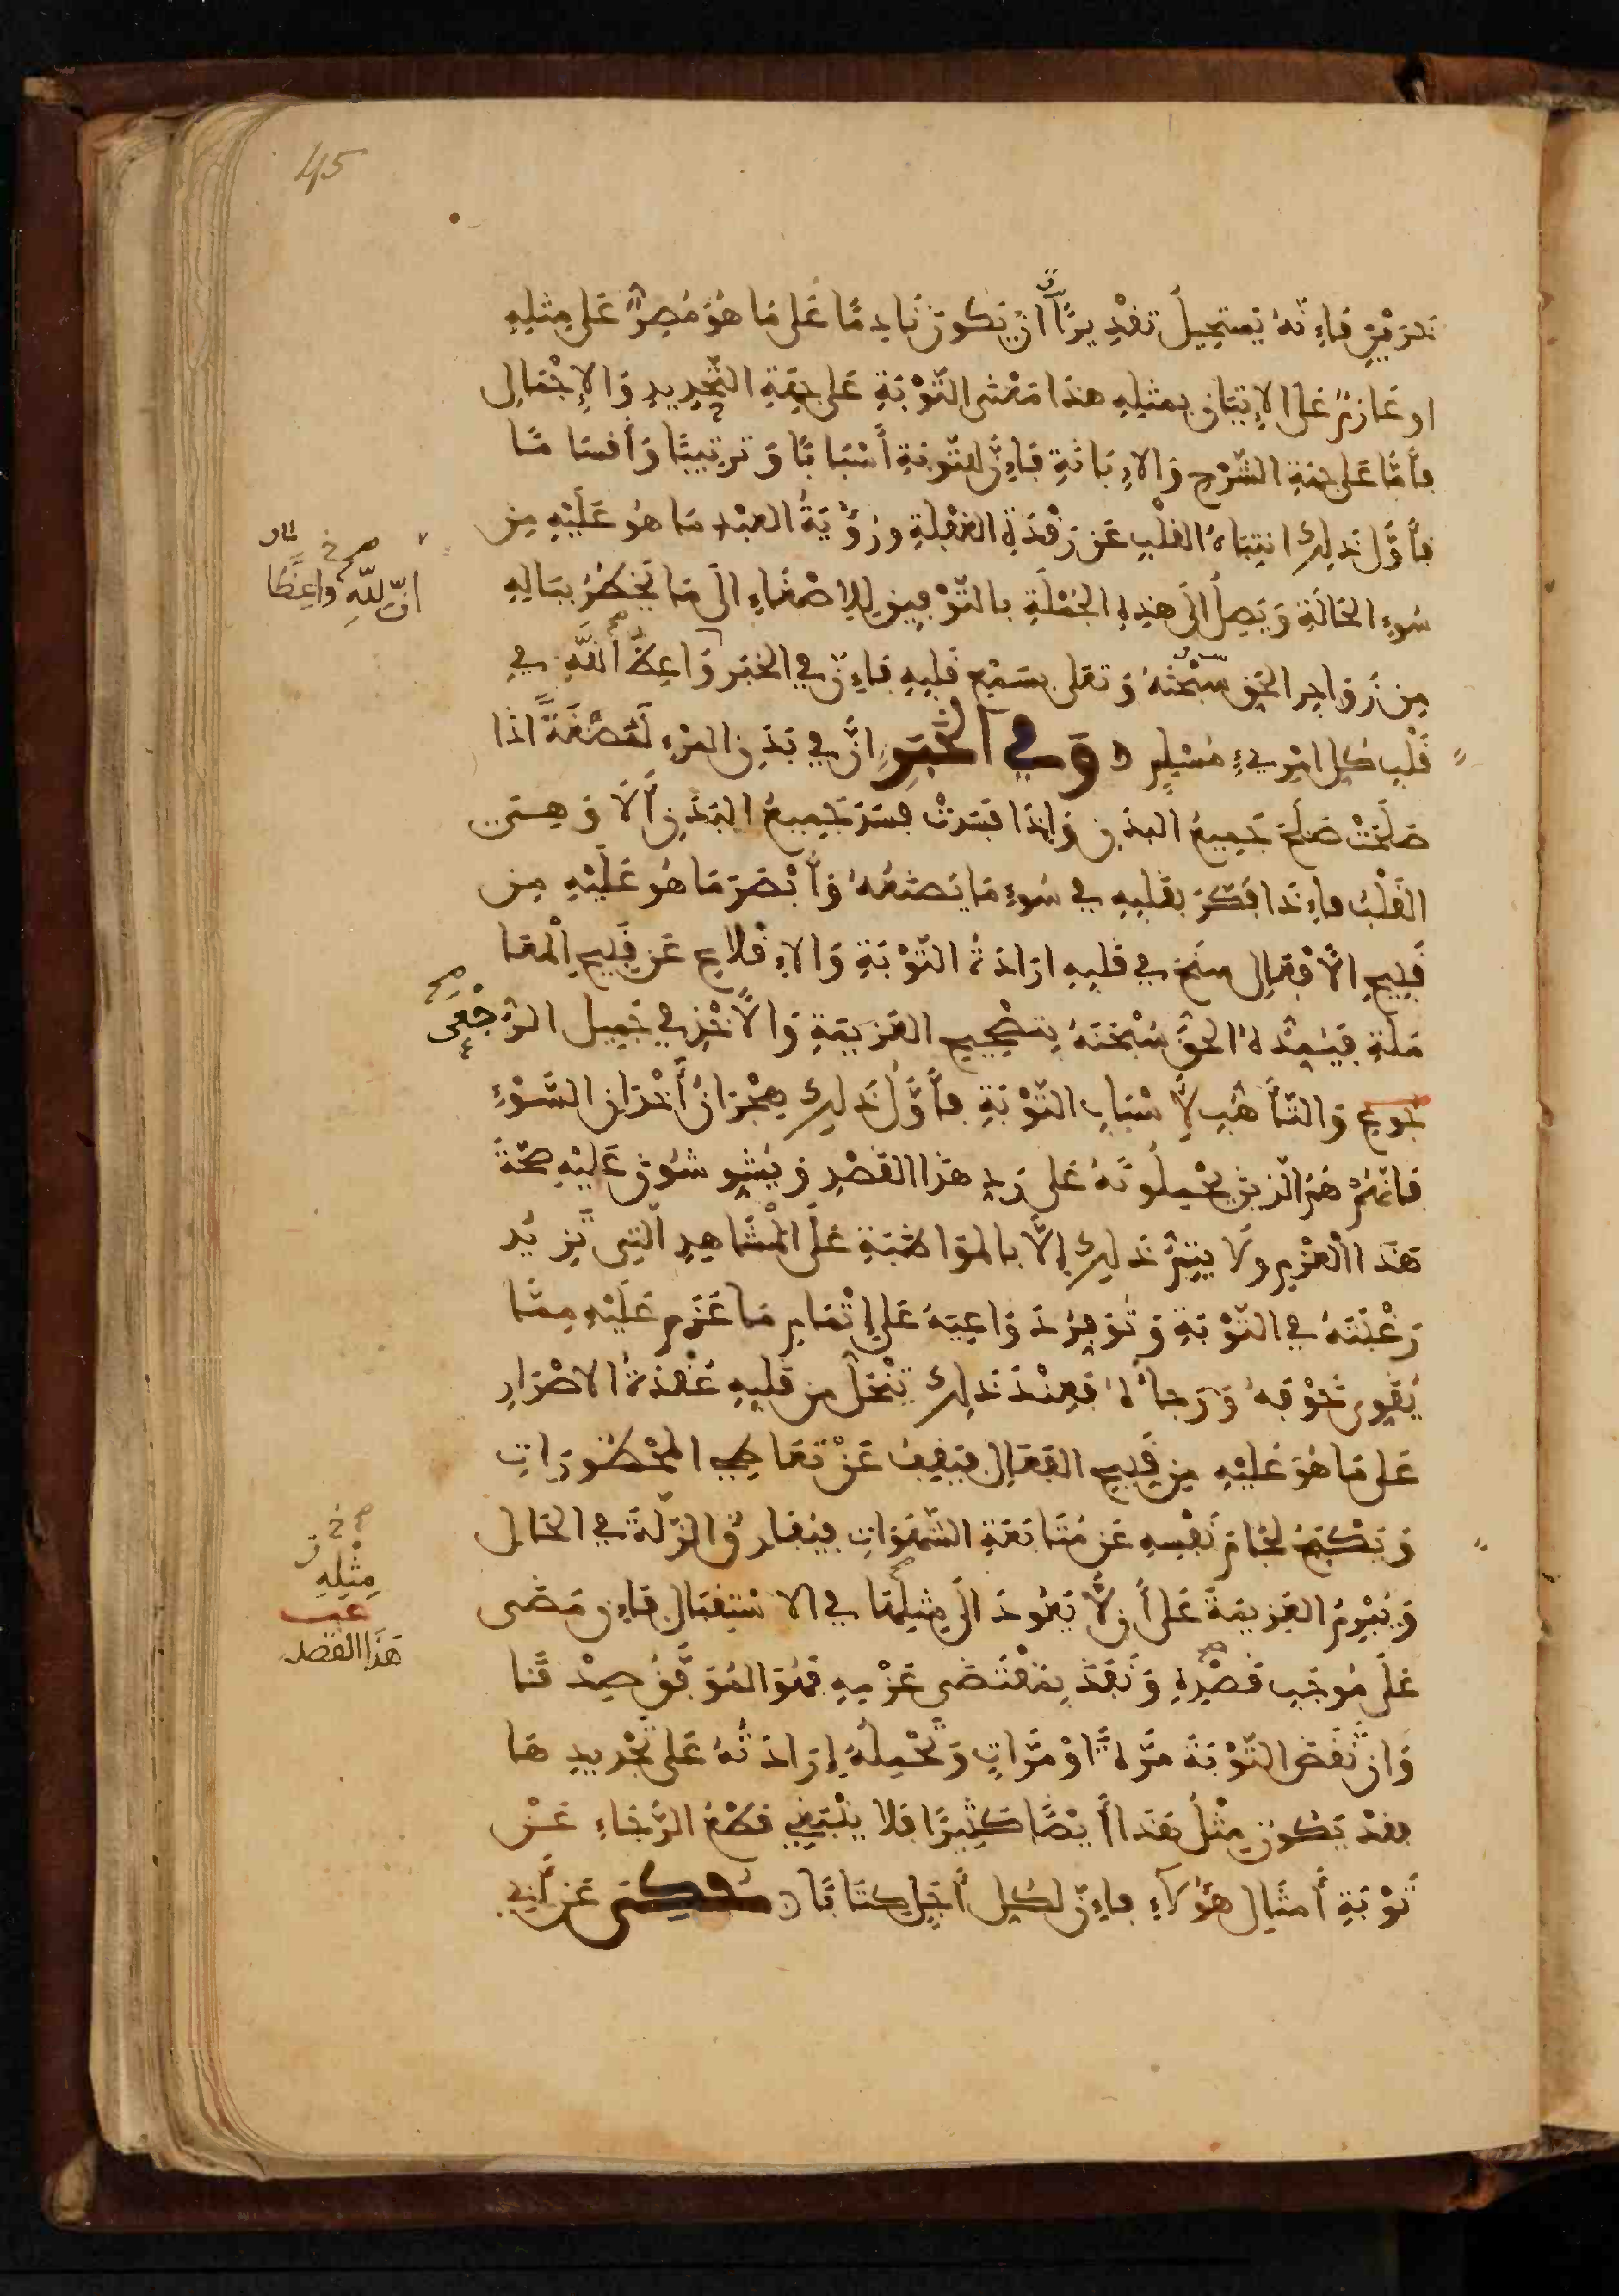 45
نحرمين فإنه يستحيل تقديرًا أن يكون نادمًا على ما هو مصر على مثله
او عازم على الإتيان بمثله هذا معنى التوبة على جهة التحديد والإجمال
فأما على جهة الشرح والإبانة فإن للتوبة أسبابًا وترتيبًا وأقسامًا
فأول ذلك انتباه القلب عن رقدة الغفلة ورؤية العبد ما هو عليه من
سوء الحالة ويصل إلى هذه الجملة بالتوفيق للإصغاء الى ما يخطر بباله
من زواجر الحق سبحنه وتعلى بسمع قلبه فإن في الخبر واعظ الله في
قلب كل امرئ مسلم وفي الخبر ان في بدن المرء لمضغة اذا
صلحت صلح جميع البدن وإذا فسدت فسد جميع البدن ألا وهي
القلب فإذا فكر بقلبه في سوء ما يصنعه وأبصر ما هو عليه من
قبيح الأفعال سنح في قلبه ارادة التوبة والإقلاع عن قبيح المعا
ملة فيمده الحق سبحنه بتصحيح العزيمة والأخذ في جميل الرجعى
جوع والتأهب لأسباب التوبة فأول ذلك هجران أخدان السوء
فإنهم هم الذين يحملونه على رد هذا القصد ويشوشون عليه صحة
هذا العزم ولا يتم ذلك إلا بالمواظبة على المشاهد التي تزيد
رغبته في التوبة وتوفر دواعيه على إتمام ما عزم عليه مما
يقوي خوفه ورجاءه فعند ذلك تنحل من قلبه عقدة الاصرار
على ما هو عليه من قبيح الفعال فيقف عن تعاطي المحظورات
ويكبح لجام نفسه عن متابعة الشهوات فيفارق الزلة في الحال
ويبرم العزيمة على أن لا يعود الى مثلها في الاستقبال فإن مضى
على موجب قصده ونفذ بمقتضى عزمه فهو الموفق صدقا
وان نقض التوبة مرة او مرات وتحمله إرادته على تجديدها
فقد يكون مثل هذا أيضا كثيرا فلا ينبغي قطع الرجاء عن
توبة أمثال هؤلاء فإن لكل أجل كتابا وحكي عن أبي
ان لله واعظا
مثله
هذا القصد